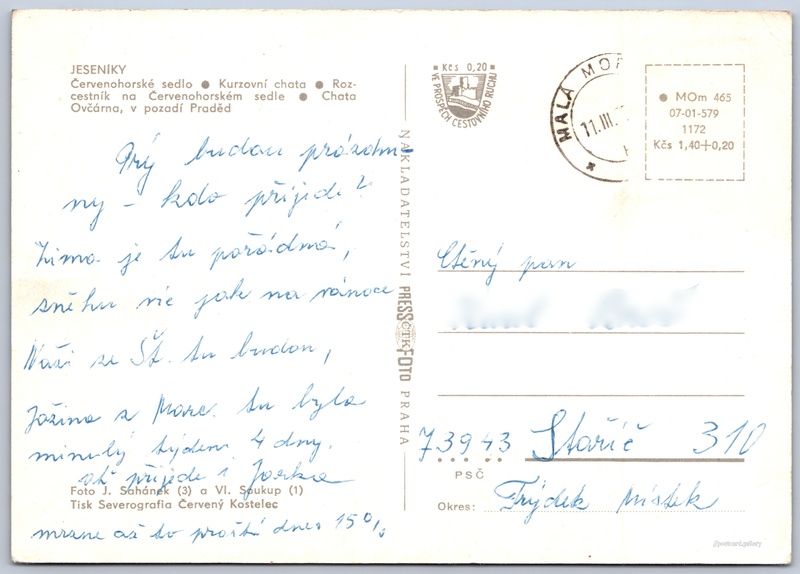 JESENÍKY
Červenohorské sedlo ● Kurzovní chata ● Roz-
cestník na Červenohorském sedle ● Chata
Ovčárna, v pozadí Praděd
Prý budou prázdni
ny – kdo přijede?
Zima je tu pořádná,
sněhu víc jak na vánoce
Naši ze Št. tu budou,
Jožina z Marc. tu byla
minulý týden 4 dny.
ať přijede i Jarka
Foto J. Sahánek (3) a Vl. Soukup (1)
Tisk Severografia Červený Kostelec
mrzne až to praští dnes 15%
NAKLADATELSTVÍ PRESSFOTO PRAHA
ČTK
Kčs 0,20
VE PROSPĚCH CESTOVNÍHO RUCHU
MALÁ MOR
11.III.
MOm 465
07-01-579
1172
Kčs 1,40+0,20
Ctěný pan
73943 Staříč 310
PSČ
Okres: Frýdek Místek